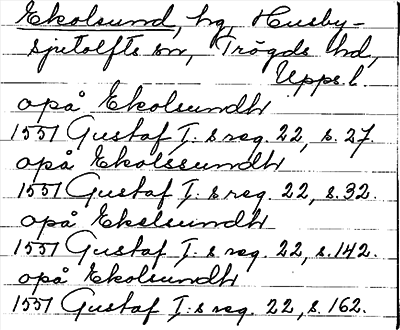 Ekolsund, hg, Husby-
sjutolfts sn, Trögds hd,
Upps. l.
opå Ekolsundh
1551 Gustaf I:s reg. 22, s. 27.
opå Ekolssundh
1551 Gustaf I:s reg. 22, s. 32.
opå Ekelsundh
1551 Gustaf I:s reg. 22, s. 142.
opå Ekolsundh
1551 Gustaf I:s reg. 22, s. 162.